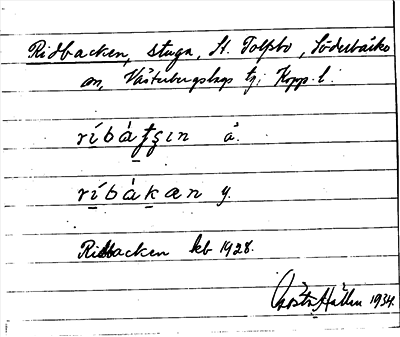 Ridbacken, stuga, St. Tolsbo, Söderbärke
sn, Västerbergslags tg: Kopp. l.
ríbàʈʂın å.
ríbàkæn y.
Ridbacken kb 1928.
Gösta Hallin 1934.